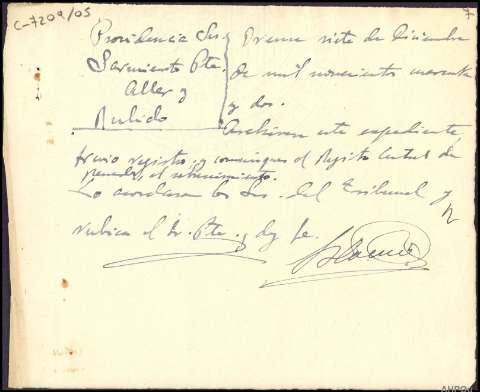 C-7209/05
7
Providencia Sres
Sarmiento Pte.
Aller y
Rubido
Orense siete de Diciembre
de mil novecientos cuarenta
y dos.
Archívese este expediente,
previo registro y comuníquese al Registro Central de
penados, el sobreseimiento.
Lo acordaron los Sres. del Tribunal y
rubica el Sr. Pte. y doy fe.
AHPOu